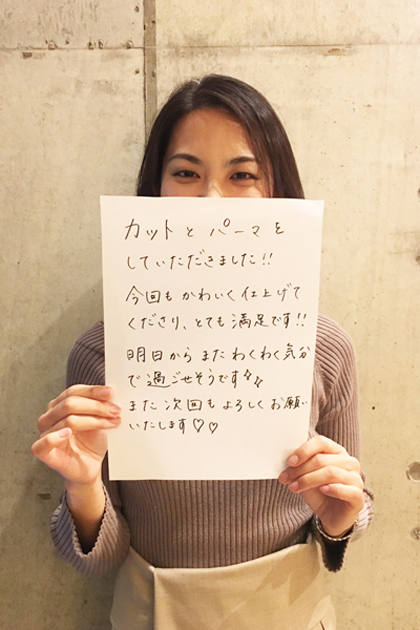 カットと パーマを
していただきました!!
今回も かわいく仕上げて
くださり、とても 満足です!!
明日から またわくわく気分
で過ごせそうです✨
また 次回も よろしく お願い
いたします♡♡